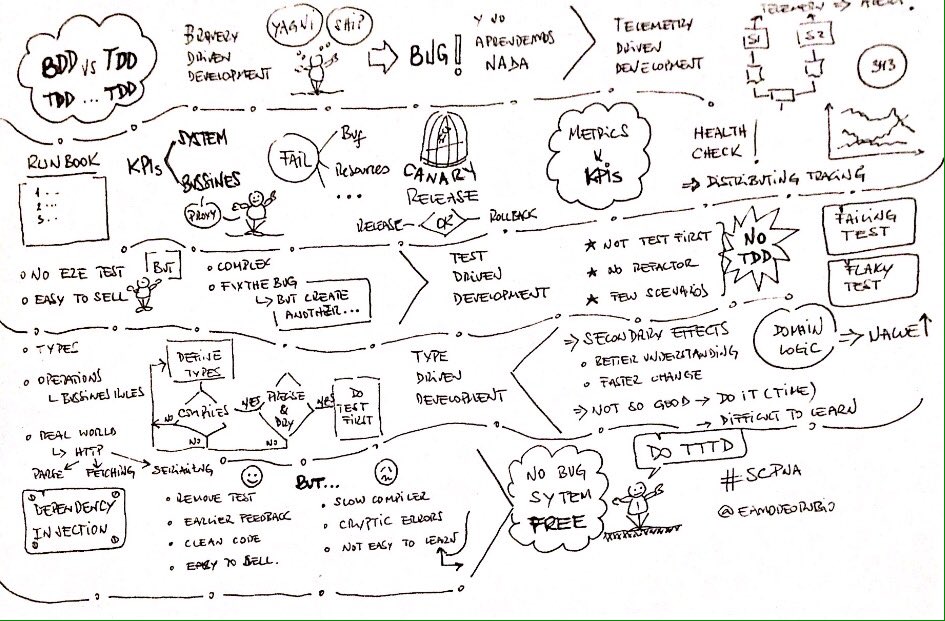 BDD vs TDD
TDD ... TDD
BRAVERY
DRIVEN
DEVELOPMENT
YAGNI
SHIP
BUG!
Y NO
APRENDEMOS
NADA
TELEMETRY
DRIVEN
DEVELOPMENT
TELEMETRY => ALERT.
S1
S2
RUNBOOK
1...
2...
3...
KPIs
SYSTEM
BUSSINES
PROXY
FAIL
Bug
Resources
...
CANARY
RELEASE
RELEASE
OK
ROLLBACK
METRICS
&
KPIs
HEALTH
CHECK!
=> DISTRIBUTING TRACING
NO E2E TEST
EASY TO SELL
BUT
COMPLEX
FIX THE BUG
BUT CREATE
ANOTHER...
TEST
DRIVEN
DEVELOPMENT
NOT TEST FIRST
NO REFACTOR
FEW SCENARIOS
NO
TDD
FAILING
TEST
FLAKY
TEST
TYPES
OPERATIONS
BUSSINES RULES
REAL WORLD
HTTP
PARSE
FETCHING
SERIALITING
DEFINE
TYPES
COMPILES
NO
YES
PRECISE
&
DRY
NO
YES
DO
TEST
FIRST
TYPE
DRIVEN
DEVELOPMENT
=> SECONDARY EFFECTS
BETTER UNDERSTANDING
FASTER CHANGE
=> NOT SO GOOD → DO IT (TIME)
→ DIFFICULT TO LEARN
DOMAIN
LOGIC
=> VALUE ↑
DEPENDENCY
INJECTION
REMOVE TEST
EARLIER FEEDBACK
CLEAN CODE
EASY TO SELL.
BUT...
SLOW COMPILER
CRYPTIC ERRORS
NOT EASY TO LEARN
NO BUG
SYTEM
FREE
DO TTTD
#SCPNA
@EAMODEORUBIO